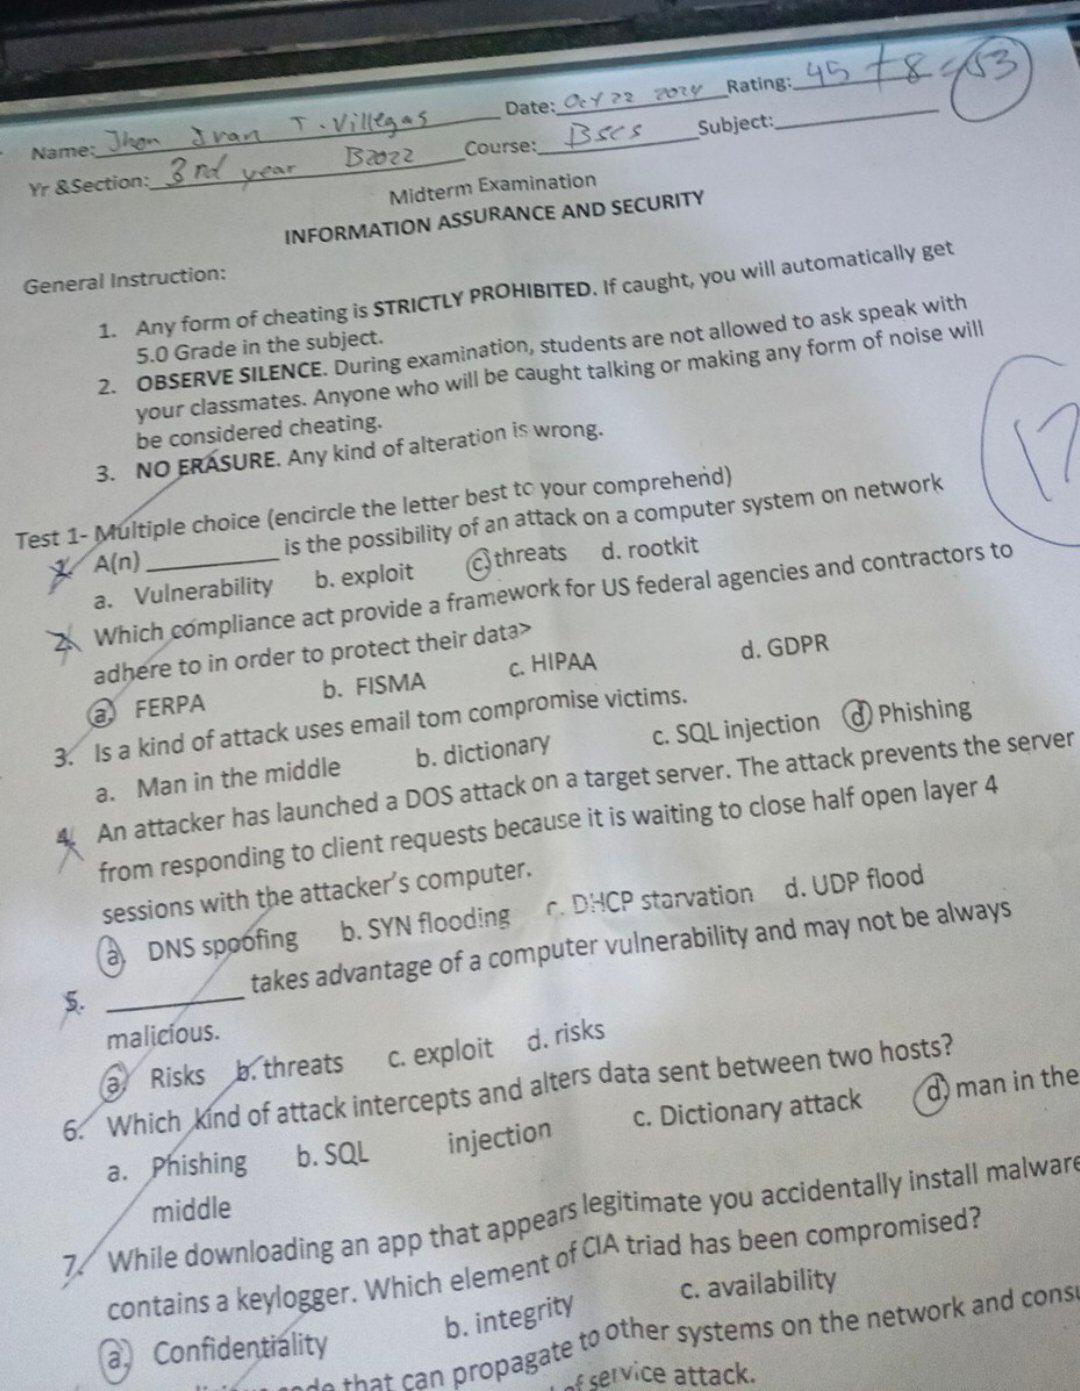 Name: Jhon Ivan T. Villegas Date: Oct 22 2024 Rating: 45 + 8 = 53
Yr &Section: 3rd year B2022 Course: BSCS Subject:
Midterm Examination
INFORMATION ASSURANCE AND SECURITY
General Instruction:
1. Any form of cheating is STRICTLY PROHIBITED. If caught, you will automatically get
5.0 Grade in the subject.
2. OBSERVE SILENCE. During examination, students are not allowed to ask speak with
your classmates. Anyone who will be caught talking or making any form of noise will
be considered cheating.
3. NO ERASURE. Any kind of alteration is wrong.
17
Test 1- Multiple choice (encircle the letter best to your comprehend)
1. A(n) ____________ is the possibility of an attack on a computer system on network
a. Vulnerability b. exploit c. threats d. rootkit
2. Which compliance act provide a framework for US federal agencies and contractors to
adhere to in order to protect their data>
a. FERPA b. FISMA c. HIPAA d. GDPR
3. Is a kind of attack uses email tom compromise victims.
a. Man in the middle b. dictionary c. SQL injection d. Phishing
4. An attacker has launched a DOS attack on a target server. The attack prevents the server
from responding to client requests because it is waiting to close half open layer 4
sessions with the attacker's computer.
a. DNS spoofing b. SYN flooding c. DHCP starvation d. UDP flood
5. ____________ takes advantage of a computer vulnerability and may not be always
malicious.
a. Risks b. threats c. exploit d. risks
6. Which kind of attack intercepts and alters data sent between two hosts?
a. Phishing b. SQL injection c. Dictionary attack d. man in the
middle
7. While downloading an app that appears legitimate you accidentally install malware
contains a keylogger. Which element of CIA triad has been compromised?
a. Confidentiality b. integrity c. availability
that can propagate to other systems on the network and
of service attack.